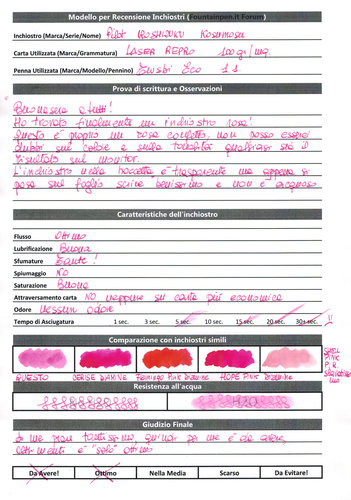 Modello per Recensione Inchiostri (Fountainpen.it Forum)
Inchiostro (Marca/Serie/Nome) Pilot IROSHIZUKU Kosumosu
Carta Utilizzata (Marca/Grammatura) LASER REPRO 100 gr/mq
Penna Utilizzata (Marca/Modello/Pennino) Twsbi Eco 1.1
Prova di scrittura e Osservazioni
Buonasera a tutti!
Ho trovato finalmente un inchiostro rosa!
Questo è proprio un rosa confetto, non posso esserci
dubbi sul colore e sulla tonalità qualsiasi sia il
risultato sul monitor.
L'inchiostro nella boccetta è trasparente ma appena si
posa sul foglio scrive benissimo e non è acquoso
Caratteristiche dell'inchiostro
Flusso Ottimo
Lubrificazione Buona
Sfumature Tante!
Spiumaggio NO
Saturazione Buona
Attraversamento carta NO neppure su carta più economica
Odore Nessun odore
Tempo di Asciugatura 1 sec. 3 sec. 5 sec. 10 sec. 15 sec. 20 sec. 30+ sec. !!
Comparazione con inchiostri simili
QUESTO CERISE DIAMINE Flamingo Pink Diamine HOPE PINK Diamine SHELL PINK P.R.
Resistenza all'acqua
Giudizio Finale
A me piace tantissimo, quindi per me è da avere,
altrimenti è "solo" ottimo
Da Avere! Ottimo Nella Media Scarso Da Evitare!